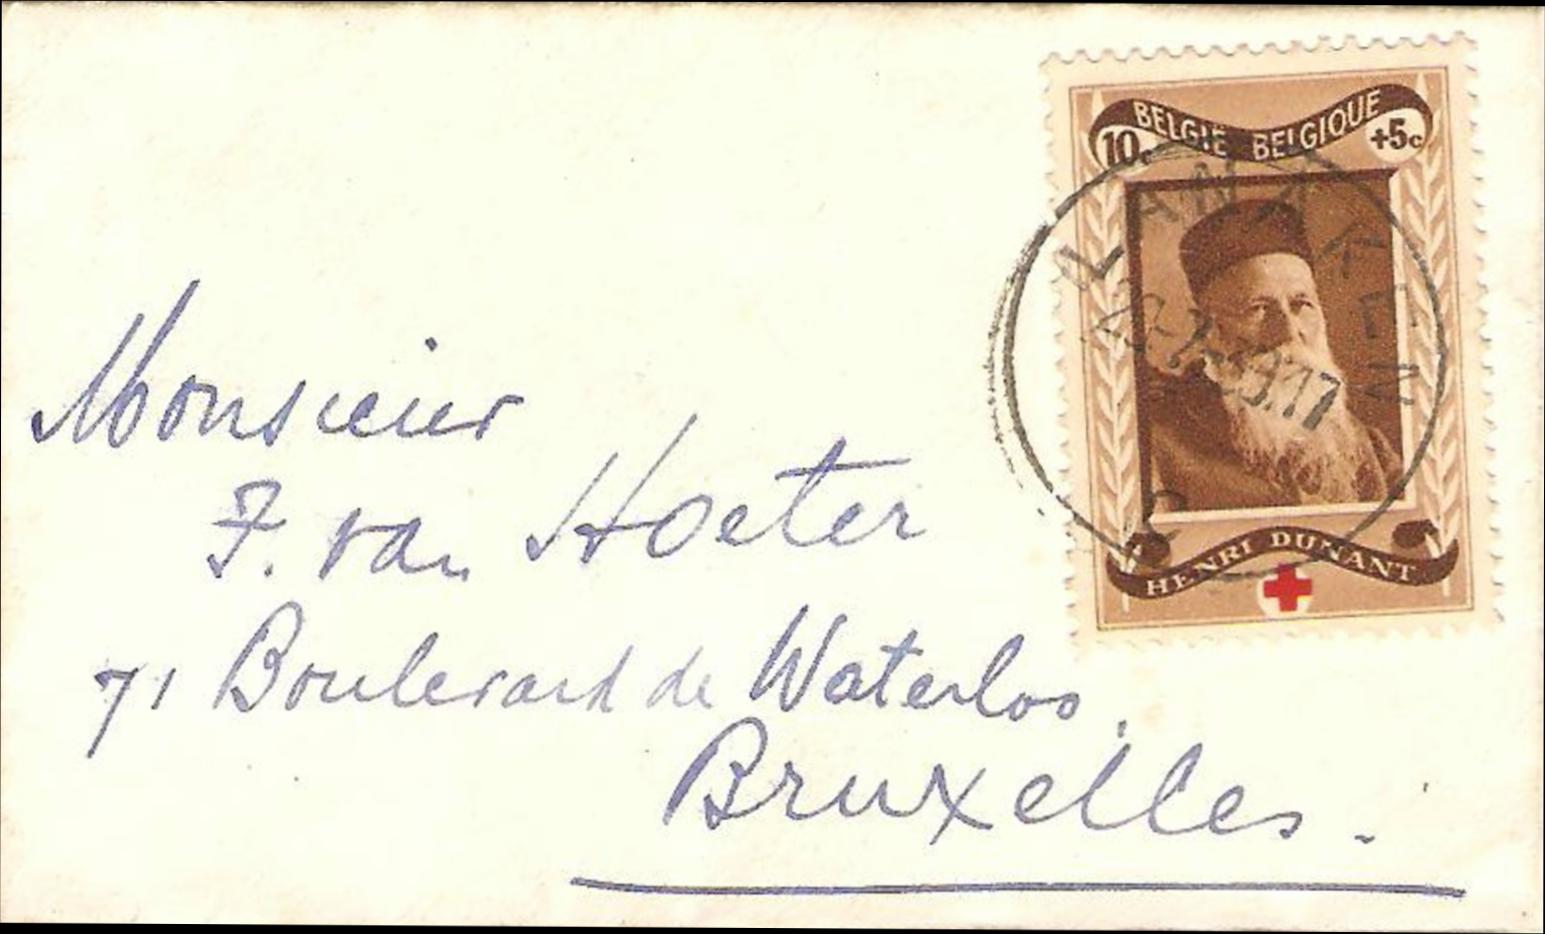 BELGIË BELGIQUE
10c +5c
LANAKEN
HENRI DUNANT
Monsieur
F. van Hoeter
71 Boulevard de Waterloo,
Bruxelles.